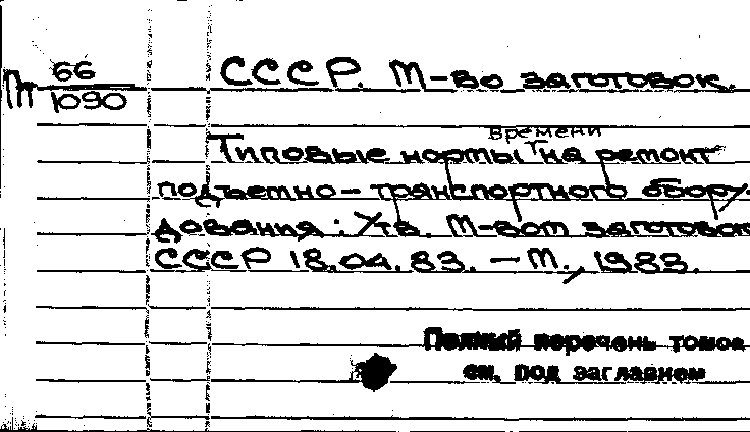 Пт 66
1090
СССР. М-во заготовок.
времени
Типовые нормы на ремонт
подъемно-транспортного обору-
дования: Утв. М-вом заготовок
СССР 18.04.83. - М., 1983.
Полный перечень томов
см. под заглавием